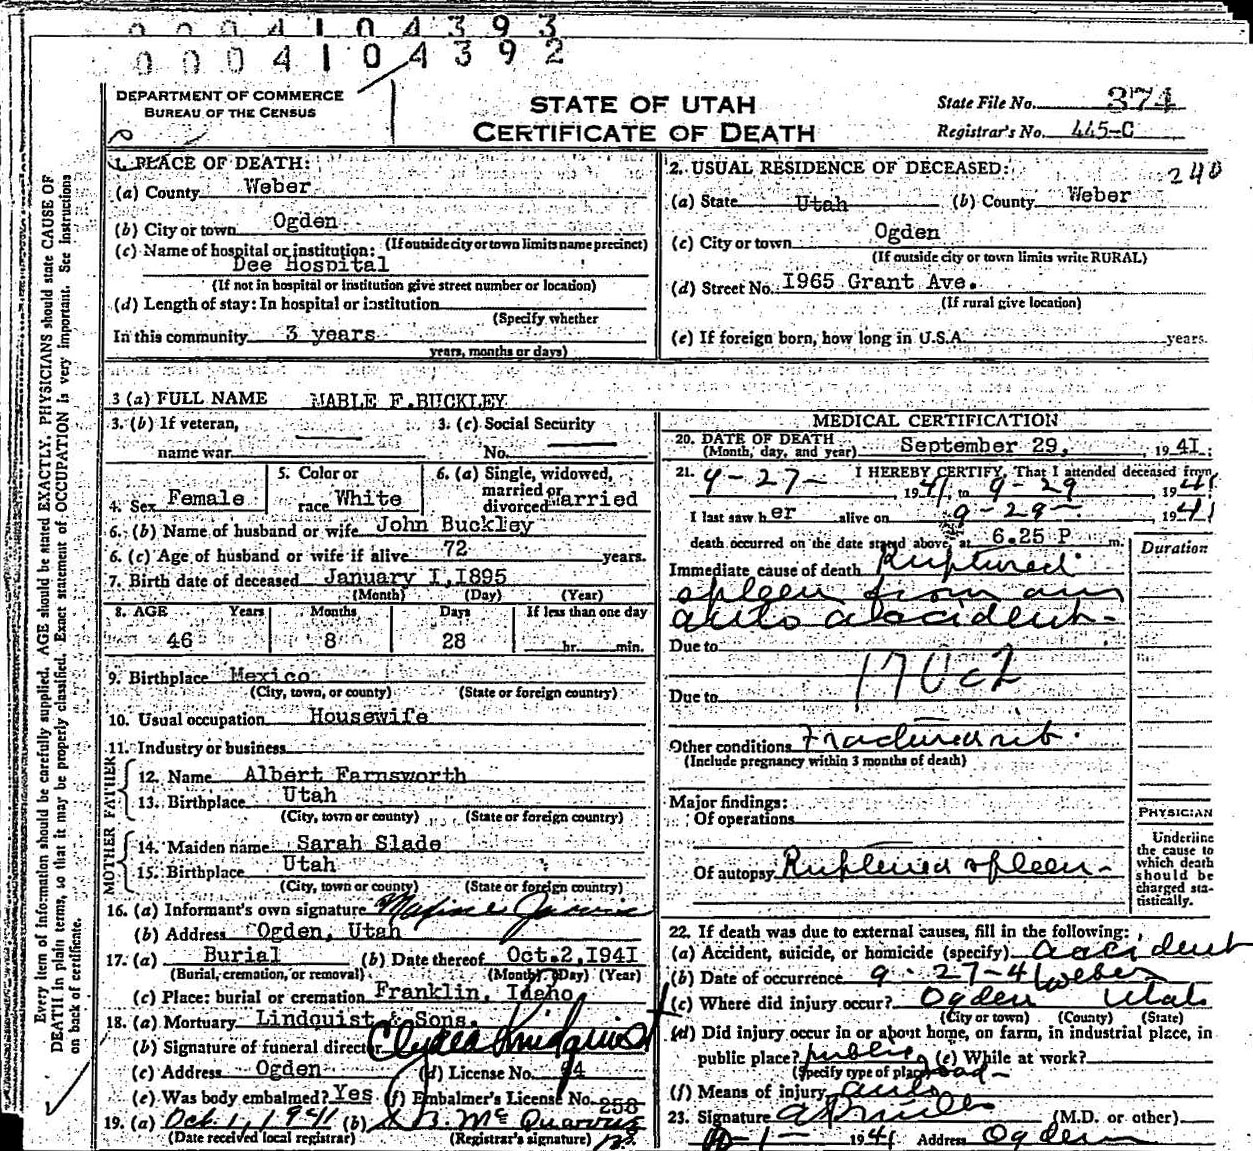 0 0 0 4 1 0 4 3 9 3
0 0 0 4 1 0 4 3 9 2
DEPARTMENT OF COMMERCE
BUREAU OF THE CENSUS
STATE OF UTAH
CERTIFICATE OF DEATH
State File No. 374
Registrar's No. 445-C
Every item of information should be carefully supplied. AGE should be stated EXACTLY. PHYSICIANS should state CAUSE OF
DEATH in plain terms, so that it may be properly classified. Exact statement of OCCUPATION is very important. See instructions
on back of certificate.
1. PLACE OF DEATH:
(a) County Weber
(b) City or town Ogden
(If outside city or town limits name precinct)
(c) Name of hospital or institution:
Dee Hospital
(If not in hospital or institution give street number or location)
(d) Length of stay: In hospital or institution
(Specify whether
In this community 3 years
years, months or days)
2. USUAL RESIDENCE OF DECEASED:
240
(a) State Utah (b) County Weber
(c) City or town Ogden
(If outside city or town limits write RURAL)
(d) Street No. 1965 Grant Ave.
(If rural give location)
(e) If foreign born, how long in U.S.A. years.
3 (a) FULL NAME MABLE F. BUCKLEY
3. (b) If veteran, name war
3. (c) Social Security No.
4. Sex Female
5. Color or race White
6. (a) Single, widowed, married or divorced Married
6. (b) Name of husband or wife John Buckley
6. (c) Age of husband or wife if alive 72 years.
7. Birth date of deceased January 1, 1895
(Month) (Day) (Year)
8. AGE Years Months Days If less than one day
46 8 28 hr. min.
9. Birthplace Mexico
(City, town, or county) (State or foreign country)
10. Usual occupation Housewife
11. Industry or business
FATHER
12. Name Albert Farnsworth
13. Birthplace Utah
(City, town or county) (State or foreign country)
MOTHER
14. Maiden name Sarah Slade
15. Birthplace Utah
(City, town or county) (State or foreign country)
16. (a) Informant's own signature Maxine Jarvis
(b) Address Ogden, Utah
17. (a) Burial (b) Date thereof Oct. 2, 1941
(Burial, cremation, or removal) (Month) (Day) (Year)
(c) Place: burial or cremation Franklin, Idaho
18. (a) Mortuary Lindquist & Sons.
(b) Signature of funeral director Clyde Lindquist
(c) Address Ogden (d) License No. 64
(e) Was body embalmed? Yes (f) Embalmer's License No. 258
19. (a) Oct. 1, 1941 (b)
(Date received local registrar) (Registrar's signature)
MEDICAL CERTIFICATION
20. DATE OF DEATH
(Month, day, and year) September 29, 1941.
21. I HEREBY CERTIFY, That I attended deceased from
9-27- 1941 to 9-29 1941
I last saw her alive on 9-29- 1941
death occurred on the date stated above, at 6.25 P m.
Duration
Immediate cause of death Ruptured
spleen from an
auto accident-
Due to
170c2
Due to
Other conditions Fractured rib.
(Include pregnancy within 3 months of death)
Major findings:
Of operations
Of autopsy Ruptured spleen-
PHYSICIAN
Underline
the cause to
which death
should be
charged sta-
tistically.
22. If death was due to external causes, fill in the following:
(a) Accident, suicide, or homicide (specify) accident
(b) Date of occurrence 9-27-41
(c) Where did injury occur? Ogden Weber Utah
(City or town) (County) (State)
(d) Did injury occur in or about home, on farm, in industrial place, in
public place? public road- (e) While at work?
(Specify type of place)
(f) Means of injury auto
23. Signature (M.D. or other)
10-1- 1941 Address Ogden